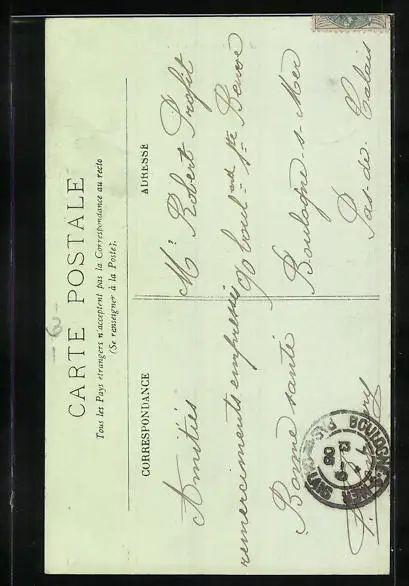 CARTE POSTALE
Tous les Pays étrangers n'acceptent pas la Correspondance au recto
(Se renseigner à la Poste).
CORRESPONDANCE
Amitiés
remerciements empressés
Bonne santé
ADRESSE
Mr Robert Profit
boul-ard Ste Beuve
Boulogne-s-Mer
Pas-de-Calais
BOULOGNE-S-MER
PAS-DE-CALAIS